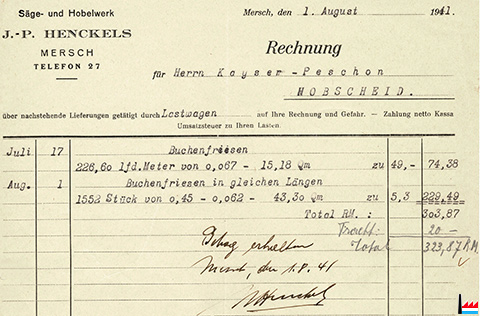 Säge- und Hobelwerk
J.-P. HENCKELS
MERSCH
TELEFON 27
Mersch, den 1. August 1941
Rechnung
für Herrn Kayser-Peschon
HOBSCHEID.
über nachstehende Lieferungen getätigt durch Lastwagen auf Ihre Rechnung und Gefahr. — Zahlung netto Kassa
Umsatzsteuer zu Ihren Lasten.
Juli 17 Buchenfriesen
226,60 lfd.Meter von 0,067 - 15,18 Qm zu 49,- 74,38
Aug. 1 Buchenfriesen in gleichen Längen
1552 Stück von 0,45 - 0,062 - 43,30 Qm zu 5,3 229,49
Total RM. : 303,87
Fracht: 20 —
Total 323,87 R.M.
Betrag erhalten
Mersch, den 1.8.41
Henckels